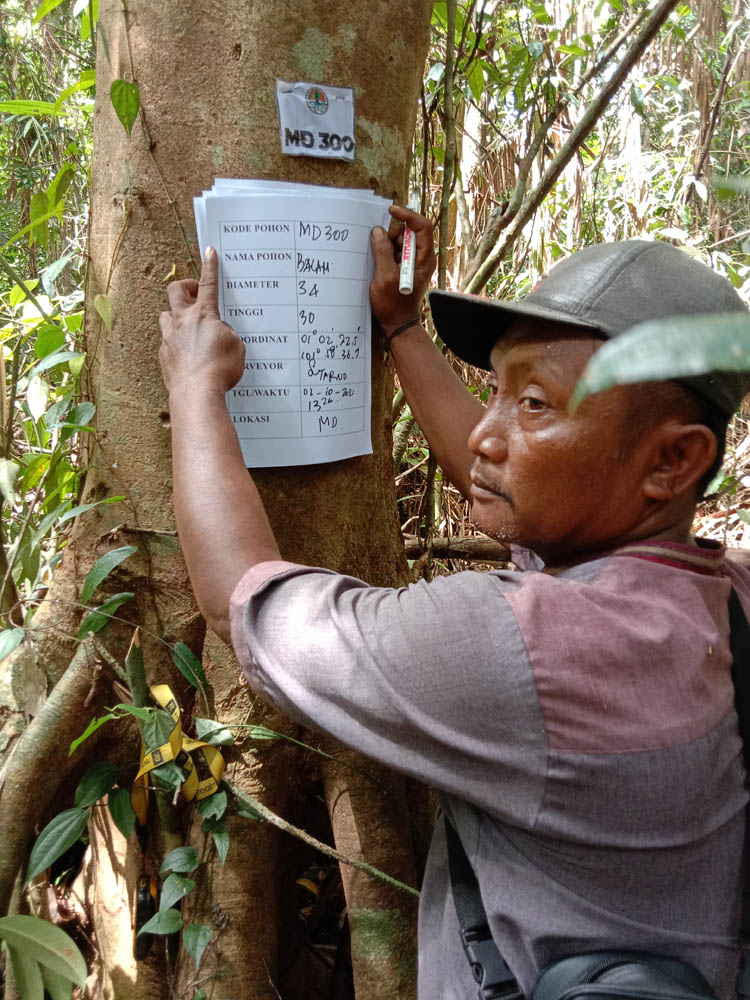 MD 300
KODE POHON MD300
NAMA POHON BALAM
DIAMETER 34
TINGGI 30
OORDINAT 01° 02' 22,5"
101° 58' 36,7
RVEYOR SUTARNO
TGL/WAKTU 02-10-2021
13 26
LOKASI MD